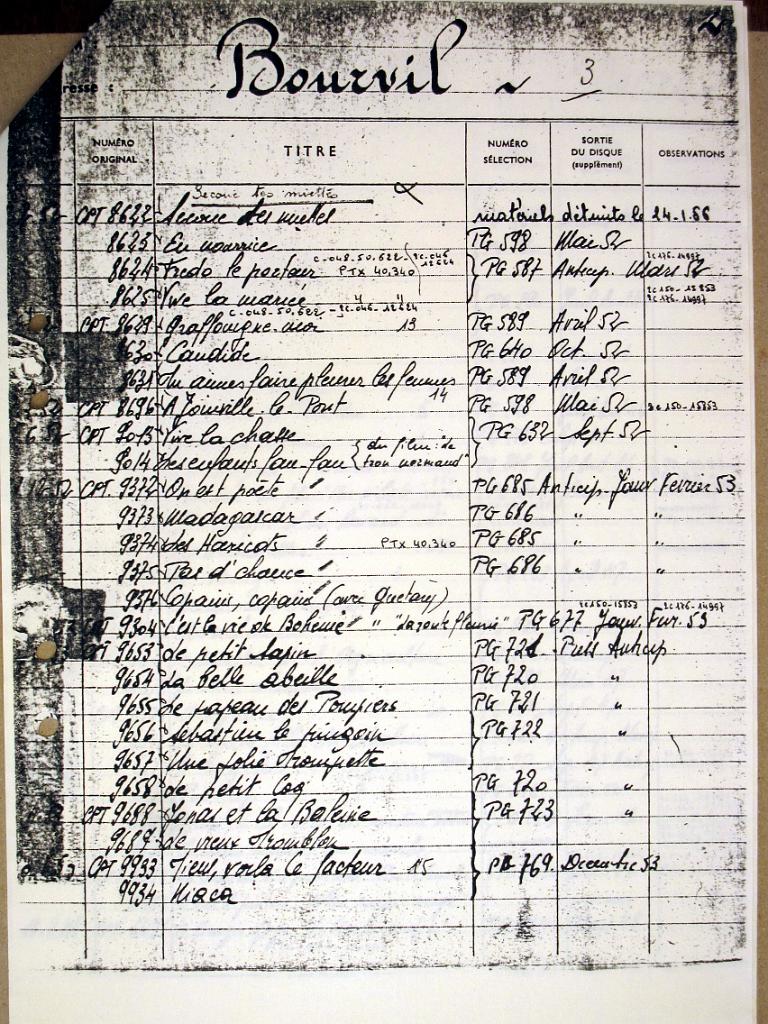 resse : Bourvil ~ 3
NUMÉRO ORIGINAL TITRE NUMÉRO SÉLECTION SORTIE DU DISQUE (supplément) OBSERVATIONS
Secoue tes miettes
CPT 8622 Secoue tes miettes matériels détruits le 24-1.66
8623 En nourrice PG 598 Mai 52
8624 Fredo le porteur C-048-50.622 - 2C-046-12624 PTX 40.340 PG 587 Anticip. Mars 52 2C176-14997
8625 Vive la mariée " " 2C150-15853 2C176-14997
C-048-50.622 - 2C-046-12624
CPT 8629 Graffouigne-moi 13 PG 589 Avril 52
8630 Candide PG 640 Oct. 52
8631 Tu aimes faire pleurer les femmes PG 589 Avril 52
CPT 8696 A Joinville-le-Pont 14 PG 598 Mai 52 2C150-15853
CPT 9013 Vive la chasse PG 632 Sept. 52
9014 Les enfants fan-fan { du film "le trou normand"
CPT. 9372 On est poète " PG 685 Anticip. Janv Fevrier 53
9373 Madagascar " PG 686 " "
9374 Les Haricots " PTX 40.340 PG 685 " "
9375 Pas d'chance " PG 686 " "
9376 Copains, copains (avec Guétary)
CPT 9304 C'est la vie de Bohème " " "La route fleurie" PG 677 Janv. Fev. 53 2C150-15853 2C176-14997
CPT 9653 Le petit lapin PG 721 Pub Anticip
9654 La belle abeille PG 720 "
9655 Le papeau des Pompiers PG 721 "
9656 Sébastien le pingoin PG 722 "
9657 Une jolie trompette
9658 Le petit Coq PG 720 "
CPT 9688 Jonas et la Baleine PG 723 "
9689 Le vieux tromblon
CPT 9933 Tiens, voilà le facteur 15 PG 769. Decembre 53
9934 Maca